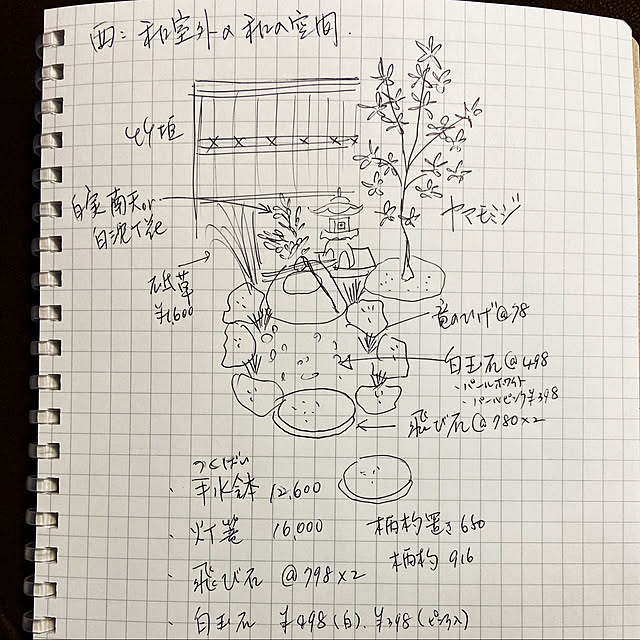 西:和室外の和の空間.
竹垣
白実南天or
白沈丁花
ヤマモミジ
砥草
¥1,600
竜のひげ@78
白玉石@498
・パールホワイト
・パールピンク¥398
飛び石@780×2
つくばい
・手水鉢 12,600
・灯篭 16,000
柄杓置き 650
柄杓 916
・飛び石 @798×2
・白玉石 ¥498(白).¥398(ピンク)